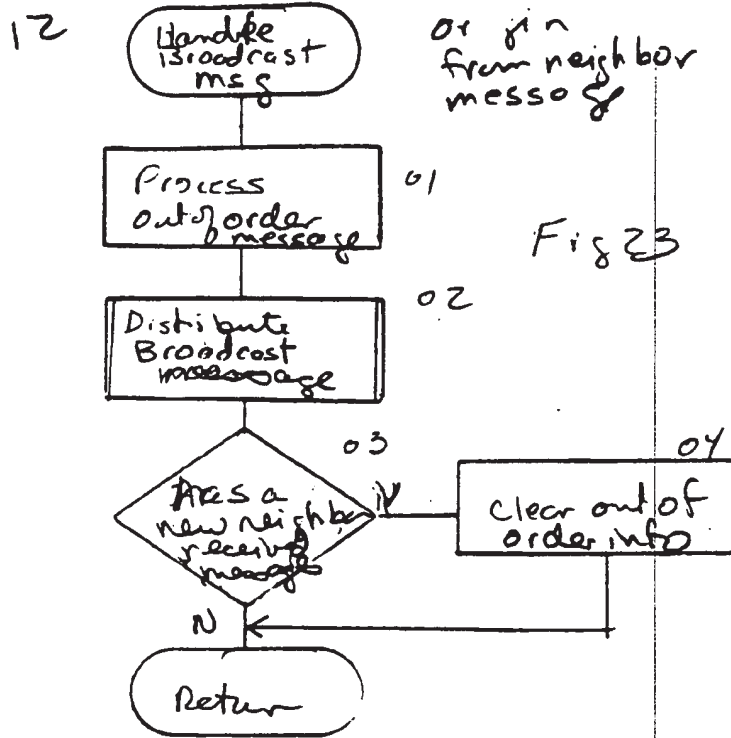 12
Handle
Broadcast
msg
origin
from neighbor
message
Process
out of order
message
01
Fig 23
02
Distribute
Broadcast
message
03
Has a
new neighbor
received
message
Y
04
clear out of
order info
N
Return